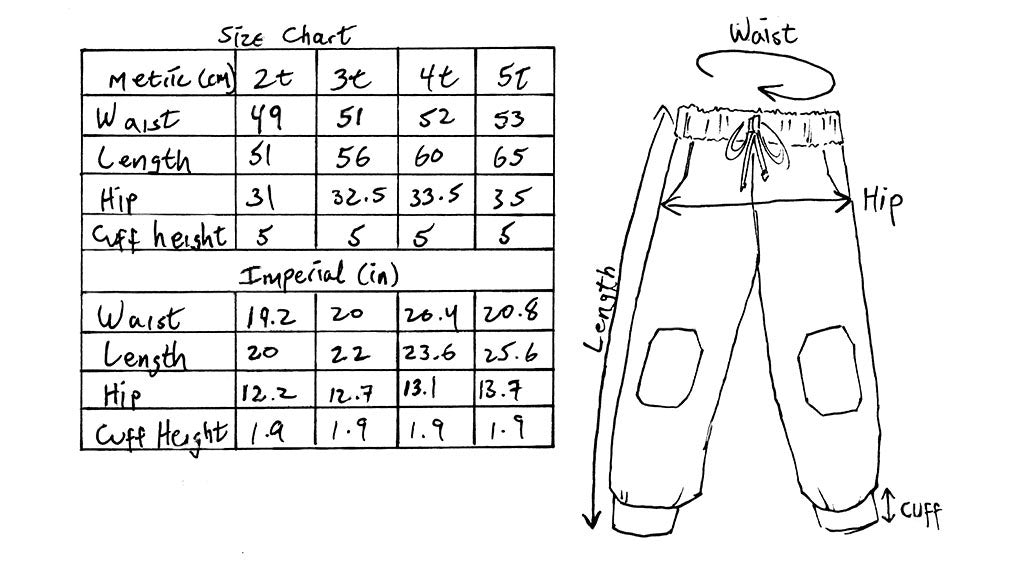 Size Chart
Metric (cm) 2t 3t 4t 5t
Waist 49 51 52 53
Length 51 56 60 65
Hip 31 32.5 33.5 35
Cuff height 5 5 5 5
Imperial (in)
Waist 19.2 20 20.4 20.8
Length 20 22 23.6 25.6
Hip 12.2 12.7 13.1 13.7
Cuff Height 1.9 1.9 1.9 1.9
Waist
Hip
Length
Cuff